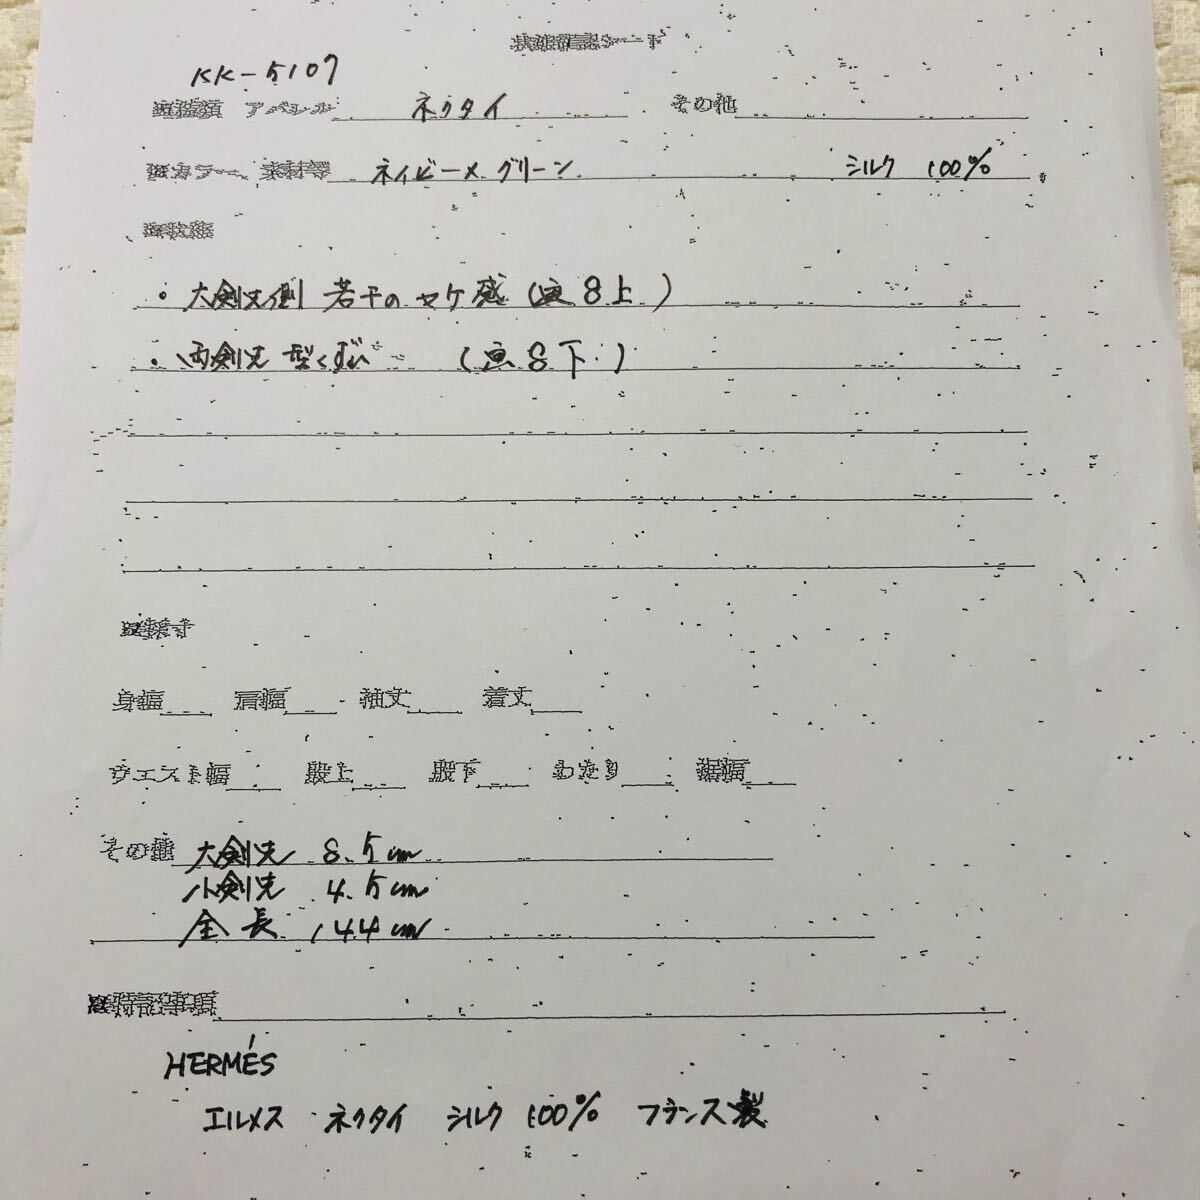 状態確認シート
KK-5107
アパレル ネクタイ その他
カラー 素材等 ネイビー×グリーン シルク 100%
・大剣先側 若干のヤケ感 (画8上)
・両剣先 型くずれ (画8下)
身幅 肩幅 袖丈 着丈
ウエスト幅 股上 股下 わたり 裾幅
その他 大剣先 8.5cm
小剣先 4.5cm
全長 144cm
特記事項
HERMÉS
エルメス ネクタイ シルク 100% フランス製